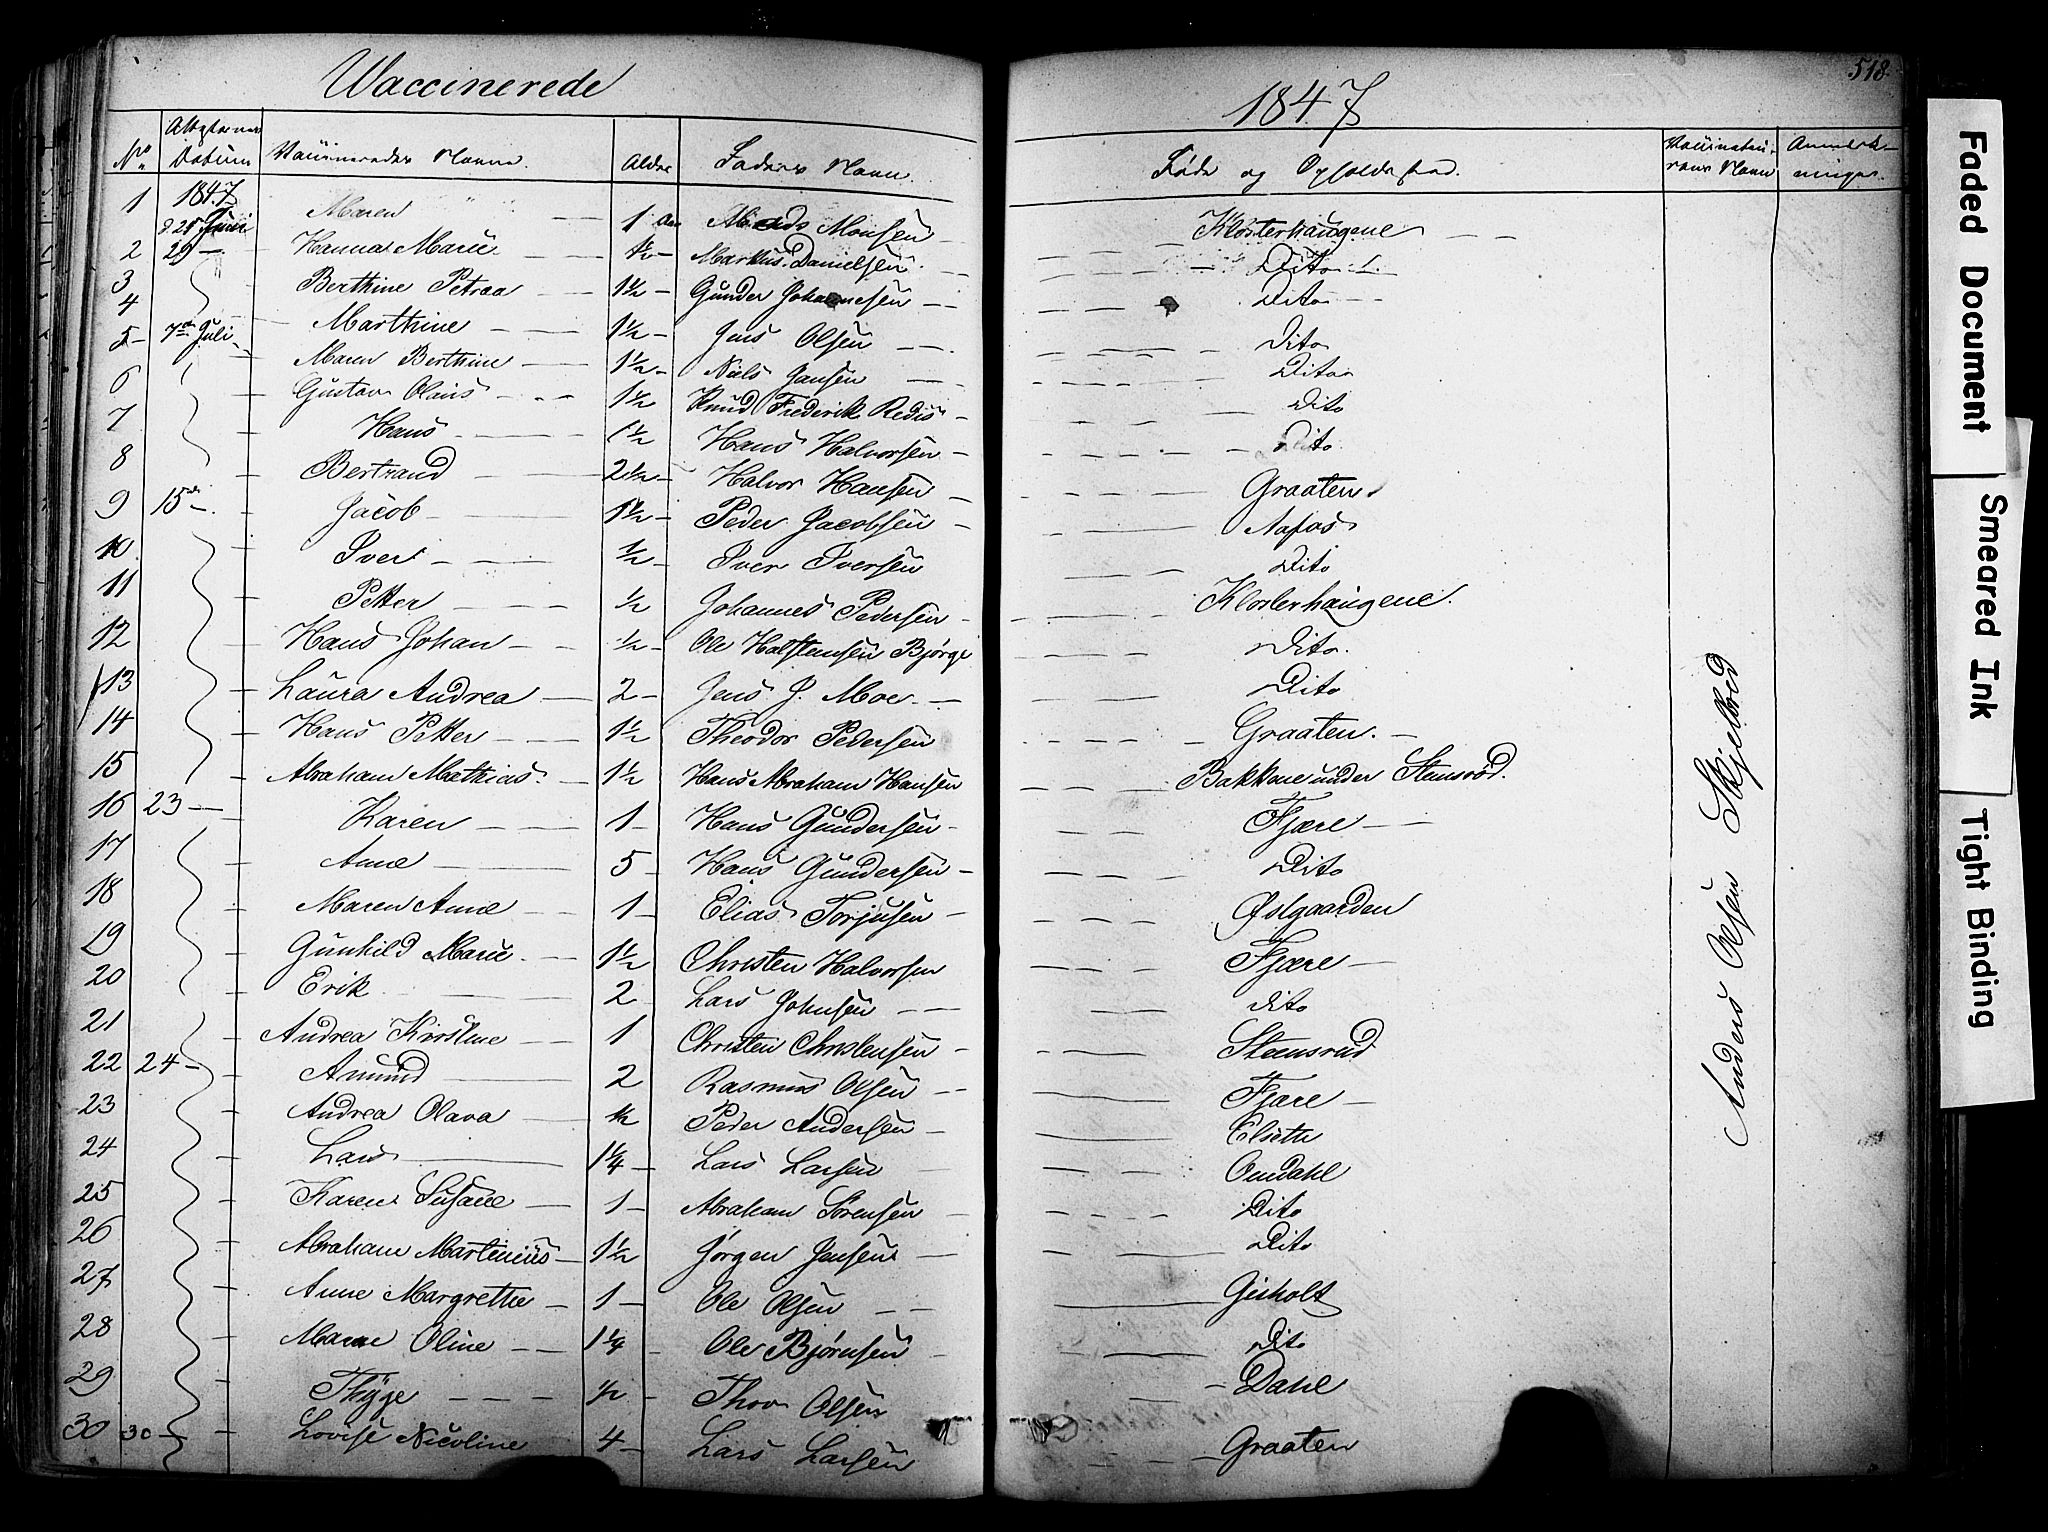 Waccinerede
1847
518
No. Attesternes Datum Vaccineredes Navne. Alder Faders Navn. Føde og Opholdssted. Vaccinateurens Navn Anmerkninger.
1847
1 d. 25 Juni Maren 1 Aar Mads Monsen Klosterhaugene
2 29 Hanna Marie Markus Danielsen Dito
3 Berthine Petrea 1 1/2 Gunder Johannesen Dito
4 Marthine 1 1/2 Jens Olsen Dito
5 7de Juli Maren Berthine 1 1/2 Niels Jansen Dito
6 Gustav Olaus 1 1/2 Knud Frederik Redis Dito
7 Hans 1 1/2 Hans Halvorsen Dito
8 Bertrand 2 1/2 Halvor Hansen Graaten
9 15de Jacob 1 1/2 Peder Jacobsen
10 Iver 1/2 Iver Iversen Dito
11 Petter 1/2 Johannes Pedersen Klosterhaugene.
12 Hans Johan 1/2 Ole Halstensen Bjørge Dito
13 Laura Andrea 2 Jens J. Moe Dito
14 Hans Petter 1 1/2 Theodor Pedersen Graaten
15 Abraham Mathias 1 1/2 Hans Abraham Hansen Bakkene under Stensrød.
16 23 Karen 1 Hans Gundersen Fjære
17 Anne 5 Hans Gundersen Dito
18 Maren Anne 1 Elias Torjusen Østgaarden
19 Gunhild Marie 1 1/2 Christen Halvorsen Fjære
20 Erik 2 Lars Johnsen dito
21 Andrea Kirstine 1 Christen Christensen Steensrud
22 24 Amund 2 Rasmus Olsen Fjære
23 Andrea Olava 1/2 Peder Andersen Elseth
24 Lars 1 1/4 Lars Larsen Omdahl
25 Karen Susane 1 Abraham Sørensen Dito
26 Abraham Martinius 1 1/2 Jørgen Jensen Dito
27 Anne Margrethe 1 Ole Olsen Gisholt
28 Maren Oline 1 1/4 Ole Bjørnsen Dito
29 Thyge 1/2 Thor Olsen Dahl
30 30 Lovise Nicoline 4 Lars Larsen Graaten
Anders Olsen Skjelbred
Faded Document
Smeared Ink
Tight Binding